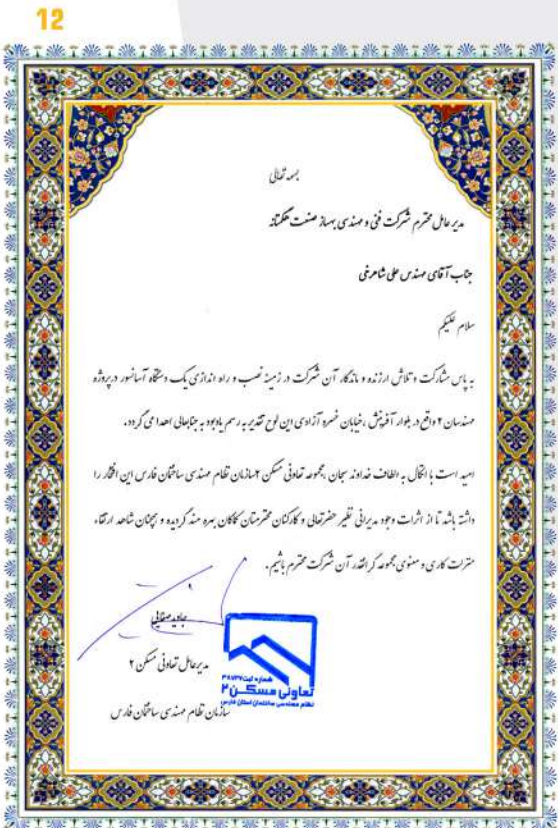 12
بسمه تعالی
مدیر عامل محترم شرکت فنی و مهندسی بهساز صنعت هگمتانه
جناب آقای مهندس علی شاهرخی
سلام علیکم
به پاس مشارکت و تلاش ارزنده و ماندگار آن شرکت در زمینهٔ نصب و راه اندازی یک دستگاه آسانسور در پروژه
مهندسان ۲ واقع در بلوار آفرینش، خیابان خسرو آزادی این لوح تقدیر به رسم یادبود به جنابعالی اهدا می گردد.
امید است با اتکال به الطاف خداوند سبحان، مجموعه تعاونی مسکن ۲سازمان نظام مهندسی ساختمان فارس این افتخار را
داشته باشد تا از اثرات وجود مدیرانی نظیر حضرتعالی و کارکنان محترمتان کماکان بهره مند گردیده و همچنان شاهد ارتقاء
منزلت کاری و معنوی مجموعه گرانقدر آن شرکت محترم باشیم.
جاوید صفایی
مدیرعامل تعاونی مسکن ۲
سازمان نظام مهندسی ساختمان فارس
تعاونی مسکن ۲
نظام مهندسی ساختمان استان فارس